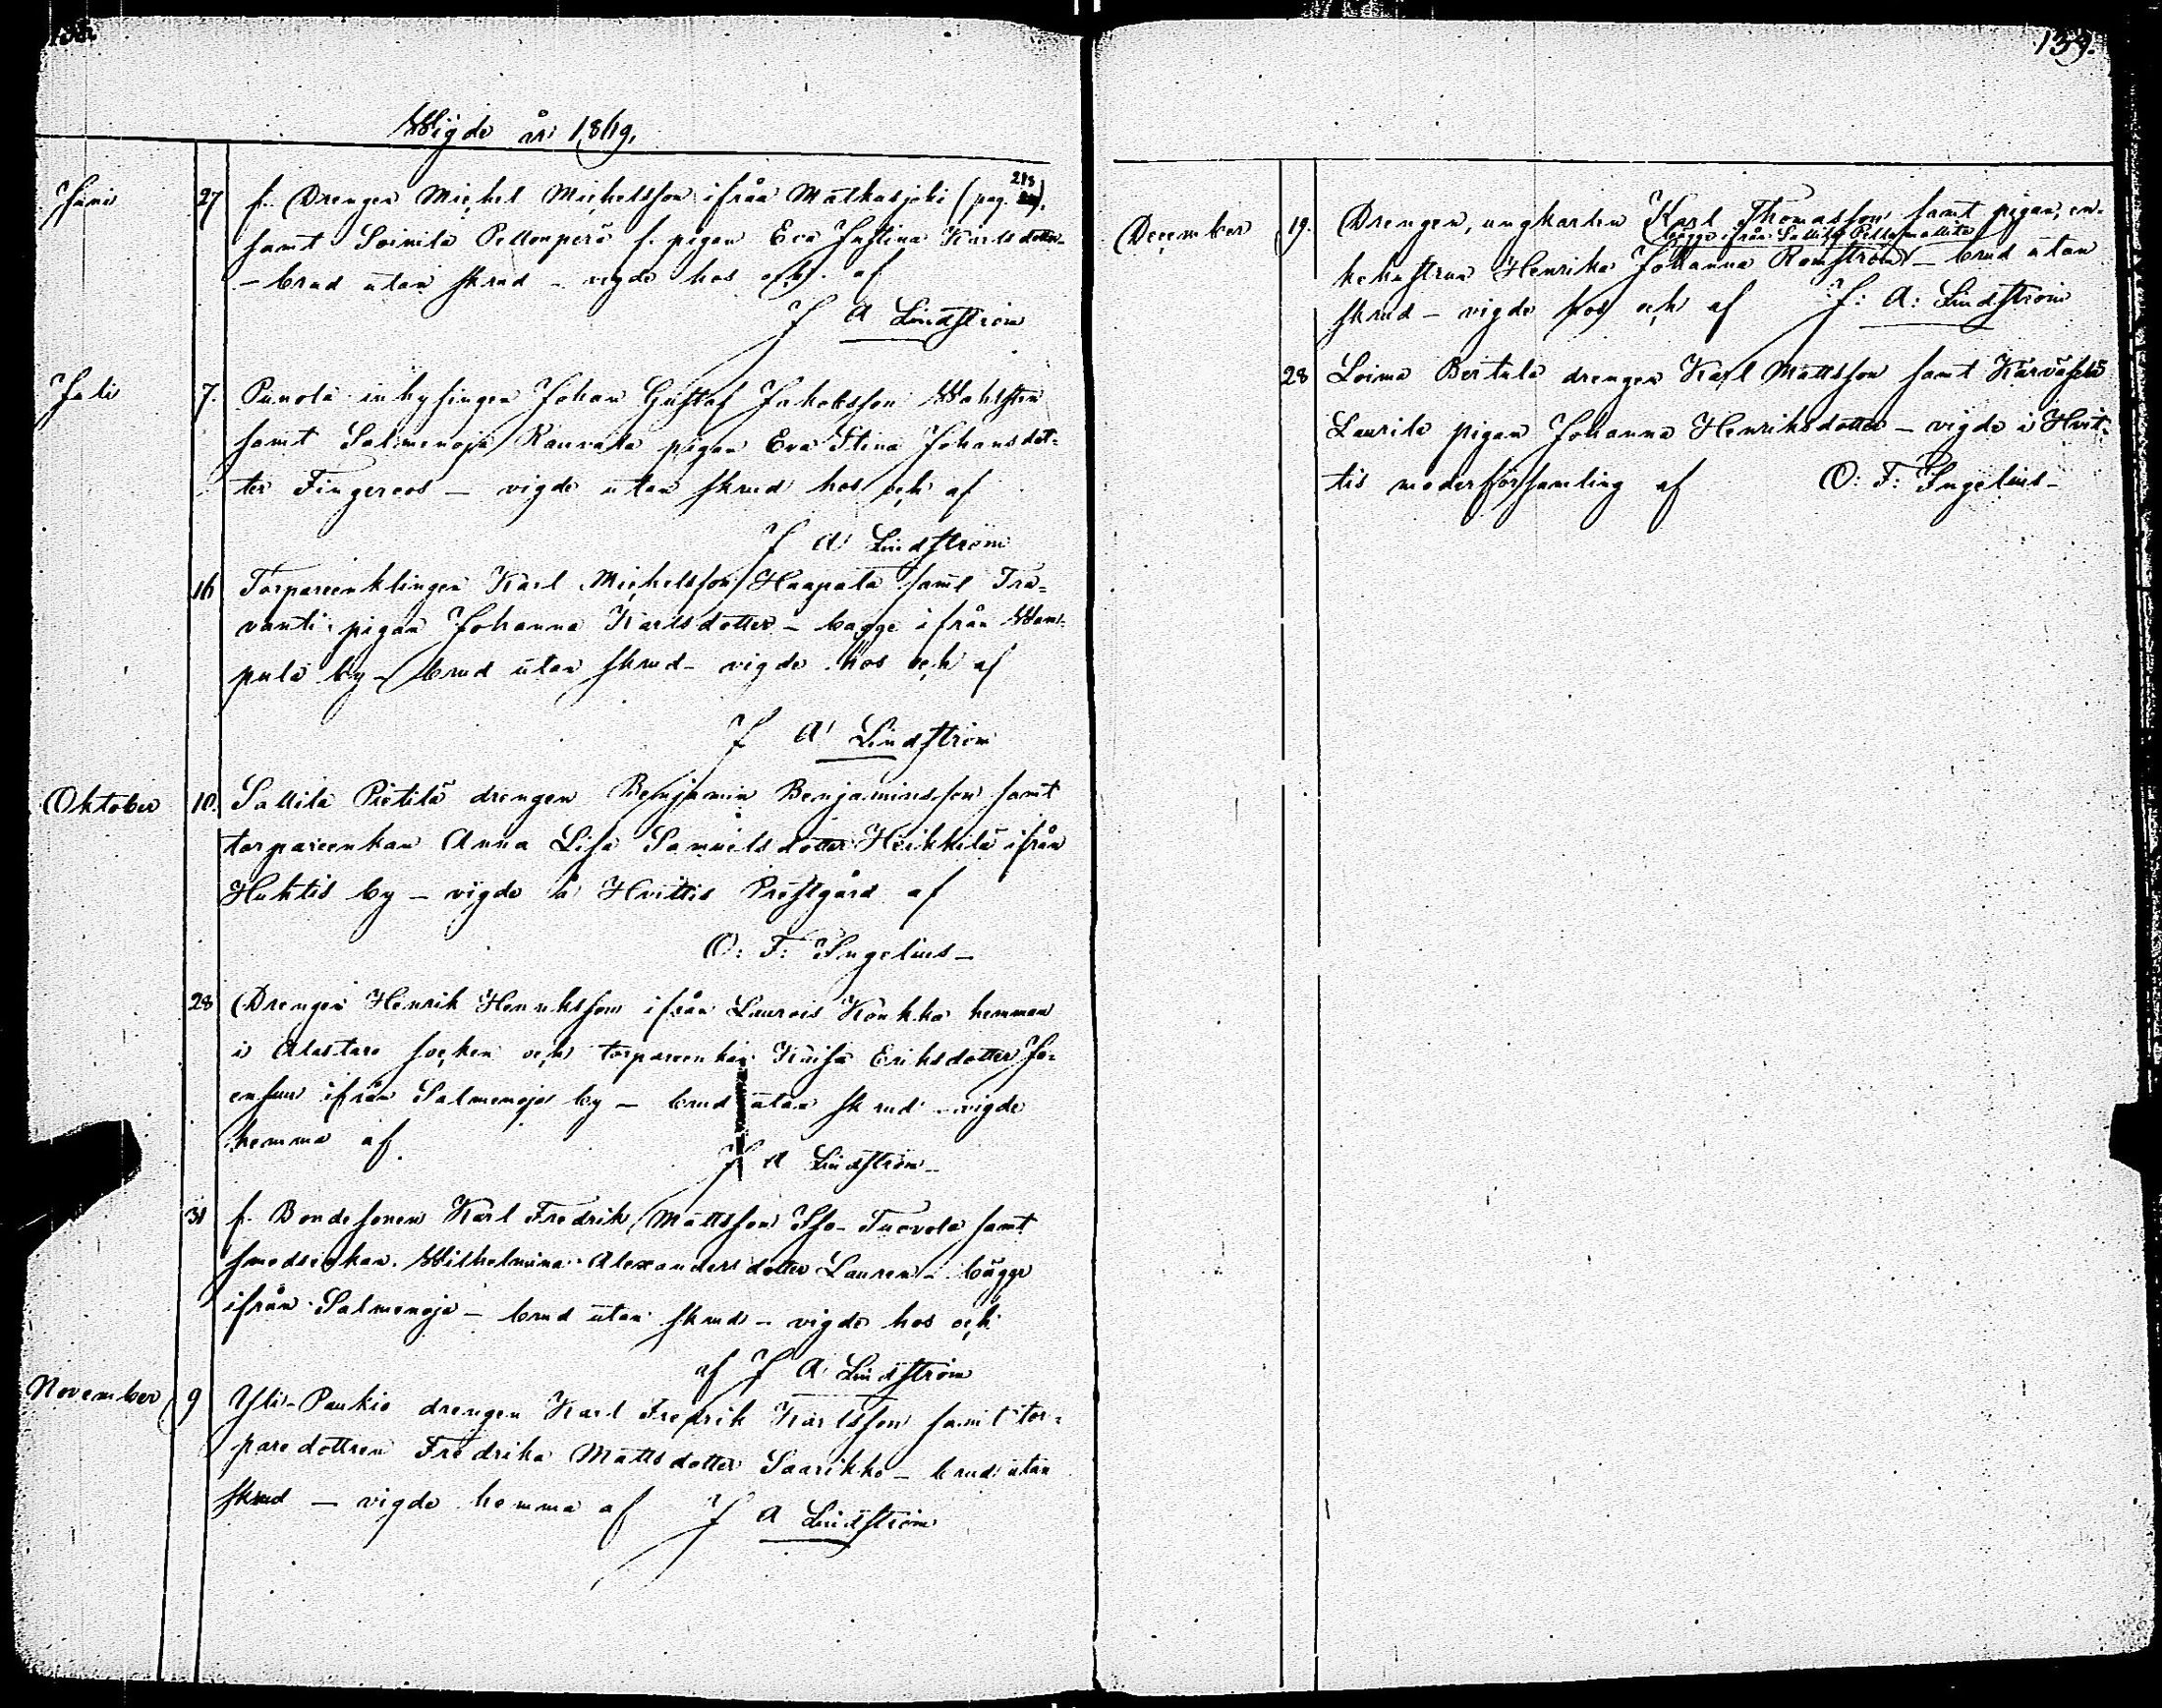 138.
Wigde år 1869.
Juni 27 f. Drengen Michel Michelsson ifrån Matkusjoki (pag. 218).
samt Soinila Pellonperä f. pigan Eva Justina Karlsdotter
– brud utan skrud – vigde hos och af
J A Lindström
Juli 7. Punola inhysingen Johan Gustaf Jakobsson Wahlsten
samt Salmenoja Rauvala pigan Eva Stina Johansdot-
ter Fingerroos – vigde utan skrud hos och af
J A Lindström
16 Torpareenklingen Karl Michelsson Haapala samt Tra-
vanti pigan Johanna Karlsdotter – bägge ifrån Wam-
pula by – brud utan skrud – vigde hos och af
J A Lindström
Oktober 10. Sallila Pietilä drengen Benjamin Benjaminsson samt
torpareenkan Anna Lisa Samuelsdotter Heikkilä ifrån
Huhtis by – vigde å Hvittis Prestgård af
O: F: Ingelius –
28 Drengen Henrik Henriksson ifrån Laurois Könkkä hemman
i Alastaro socken och torpareenkan Kaisa Eriksdotter Jo-
ensuu ifrån Salmenoja by – brud utan skrud – vigde
hemma af
J A Lindström –
31 f. Bondesonen Karl Fredrik Mattsson Iso-Tuovola samt
smedsenkan Wilhelmina Alexandersdotter Lauren – bägge
ifrån Salmenoja – brud utan skrud – vigde hos och
af J A Lindström
November 9 Yli-Paukio drengen Karl Fredrik Karlsson samt tor-
paredottren Fredrika Mattsdotter Saarikko – brud utan
skrud – vigde hemma af J A Lindström
139.
December 19. Drengen, ungkarlen Karl Thomasson samt pigan, en-
bägge ifrån Sallila Peltomattila
kehustrun Henrika Johanna Ramström – brud utan
skrud – vigde hos och af J: A: Lindström
28 Loima Bertula drengen Karl Mattsson samt Karväselä
Laurila pigan Johanna Henriksdotter – vigde i Hvit-
tis moderförsamling af O: F: Ingelius –